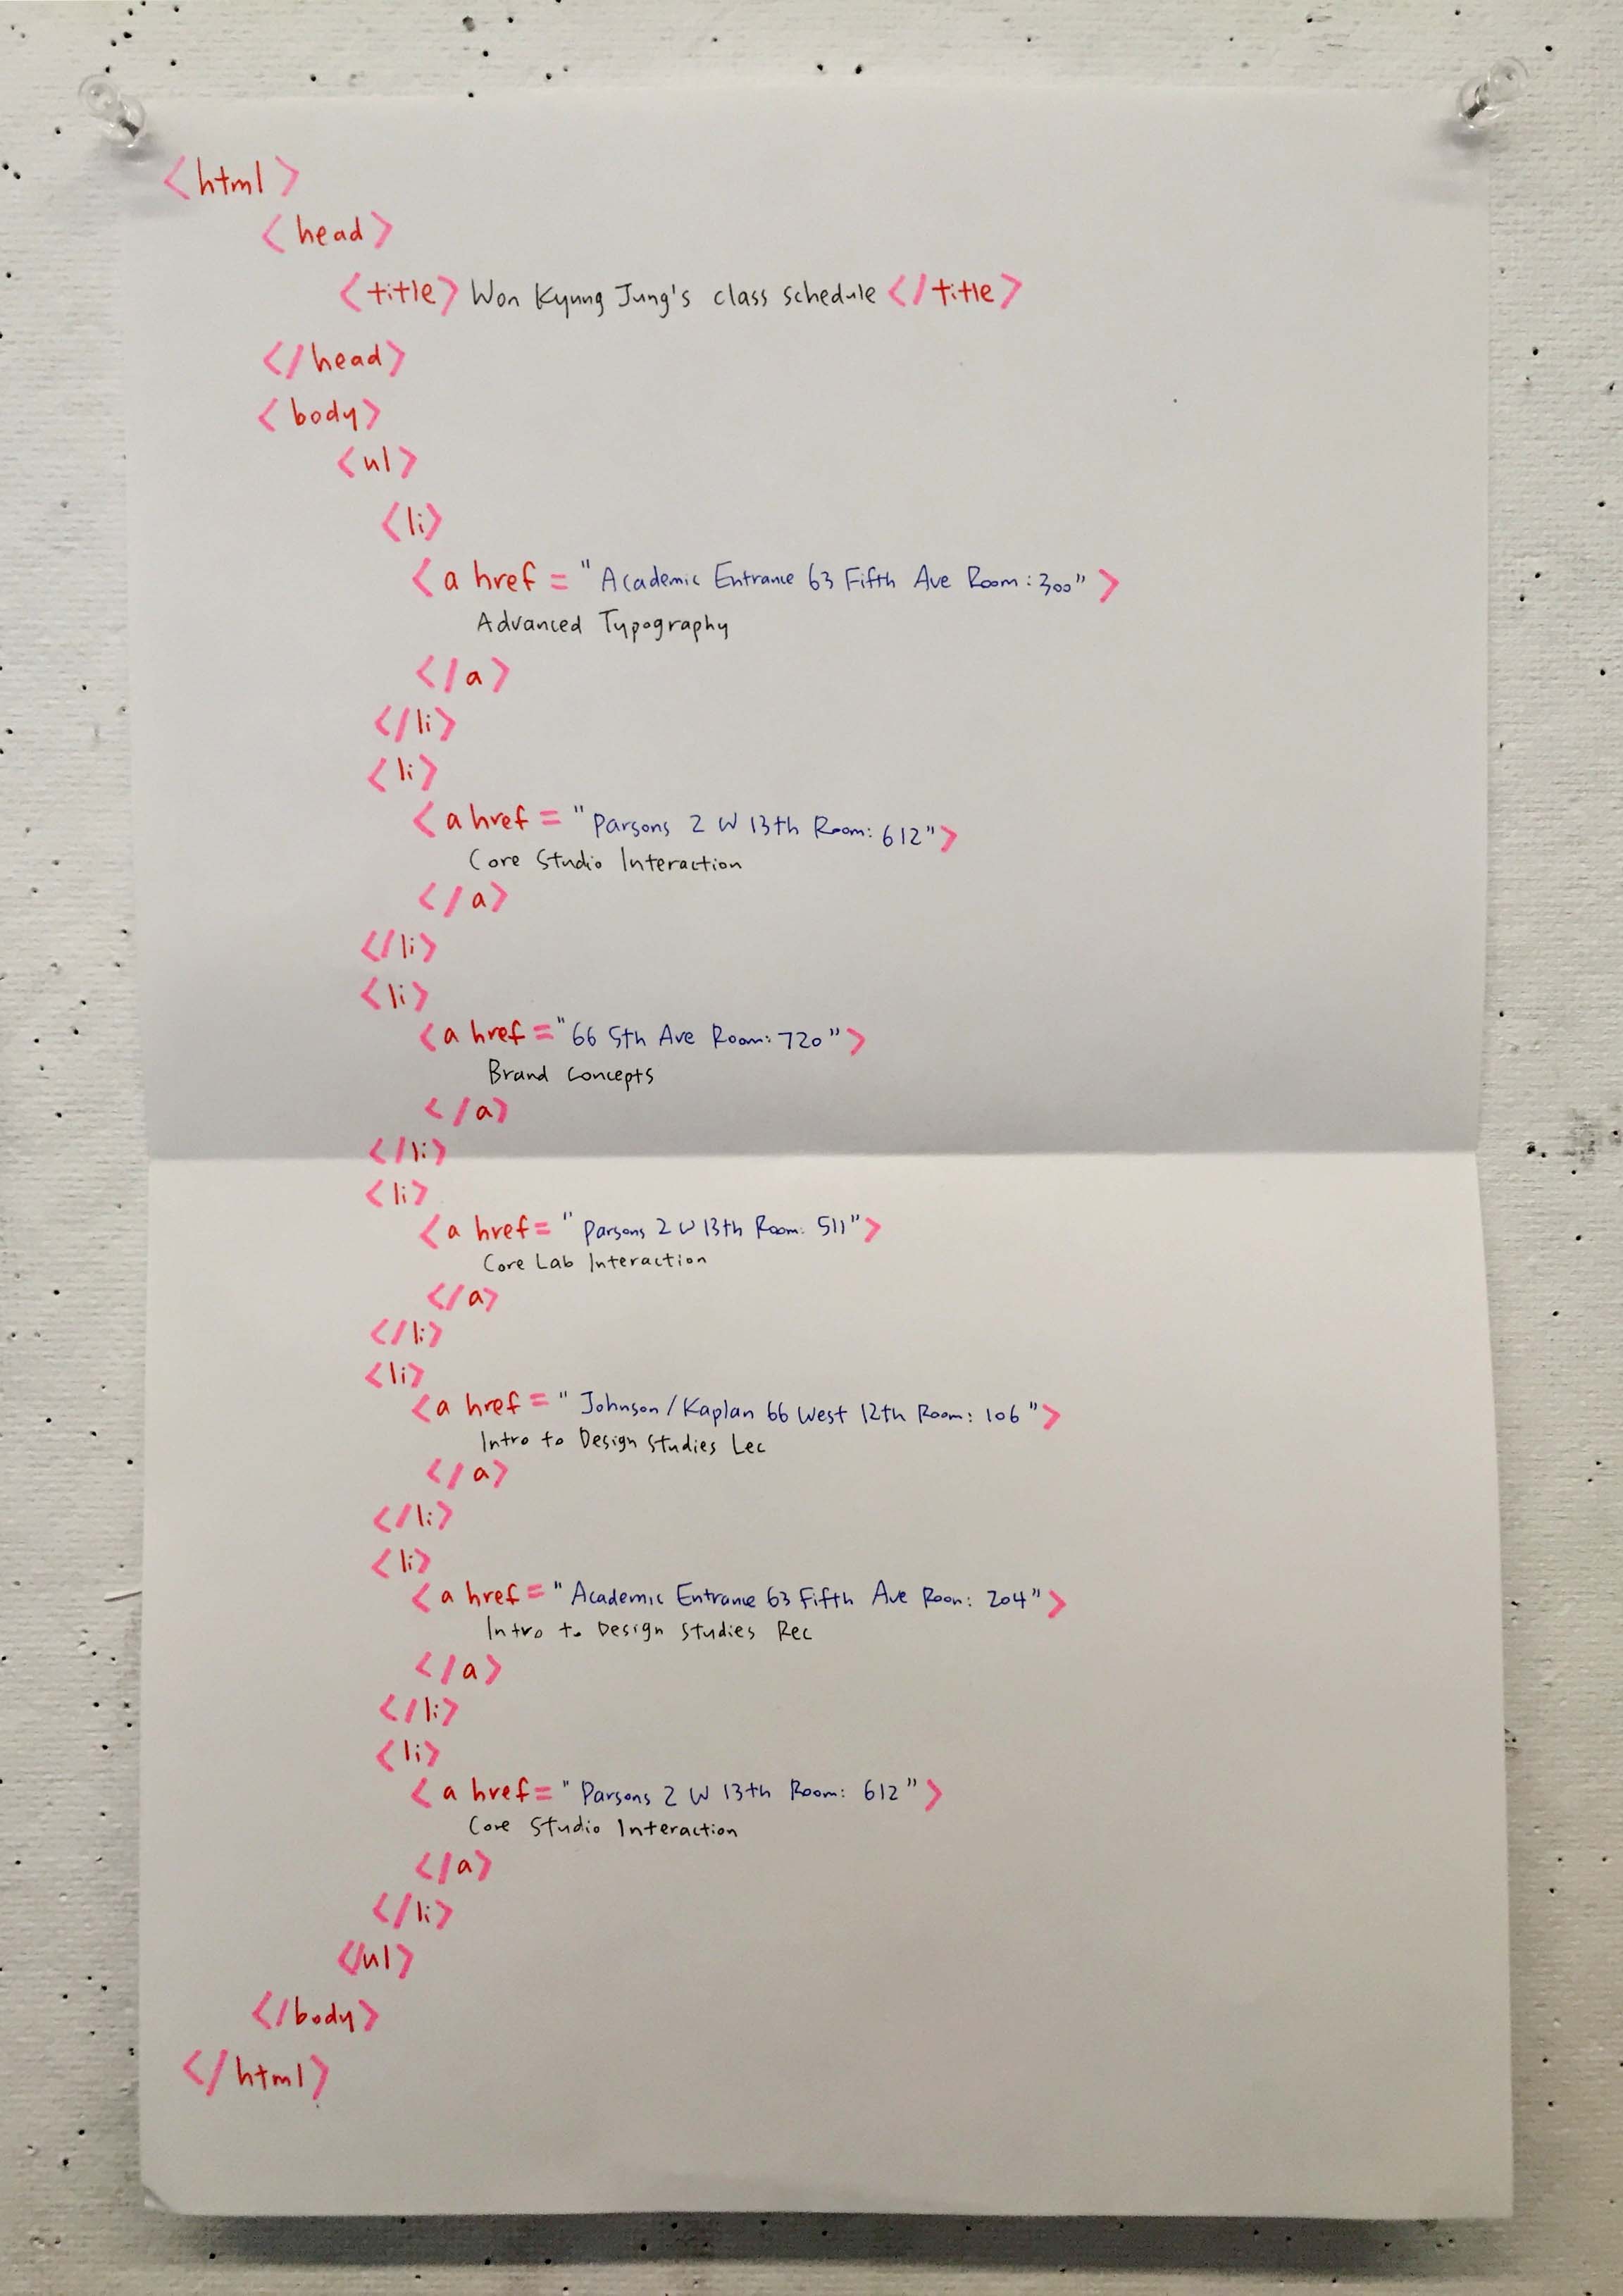 <html>
<head>
<title> Won Kyung Jung's class schedule </title>
</head>
<body>
<ul>
<li>
<a href = "Academic Entrance 63 Fifth Ave Room: 300">
Advanced Typography
</a>
</li>
<li>
<a href = "Parsons 2 W 13th Room: 612">
Core Studio Interaction
</a>
</li>
<li>
<a href = "66 5th Ave Room: 720">
Brand Concepts
</a>
</li>
<li>
<a href = "Parsons 2 W 13th Room: 511">
Core Lab Interaction
</a>
</li>
<li>
<a href = "Johnson/Kaplan 66 West 12th Room: 106">
Intro to Design Studies Lec
</a>
</li>
<li>
<a href = "Academic Entrance 63 Fifth Ave Room: 204">
Intro to Design Studies Rec
</a>
</li>
<li>
<a href = "Parsons 2 W 13th Room: 612">
Core Studio Interaction
</a>
</li>
</ul>
</body>
</html>